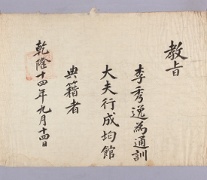 教旨
李秀逸為通訓
大夫行成均館
典籍者
乾隆十四年九月十四日